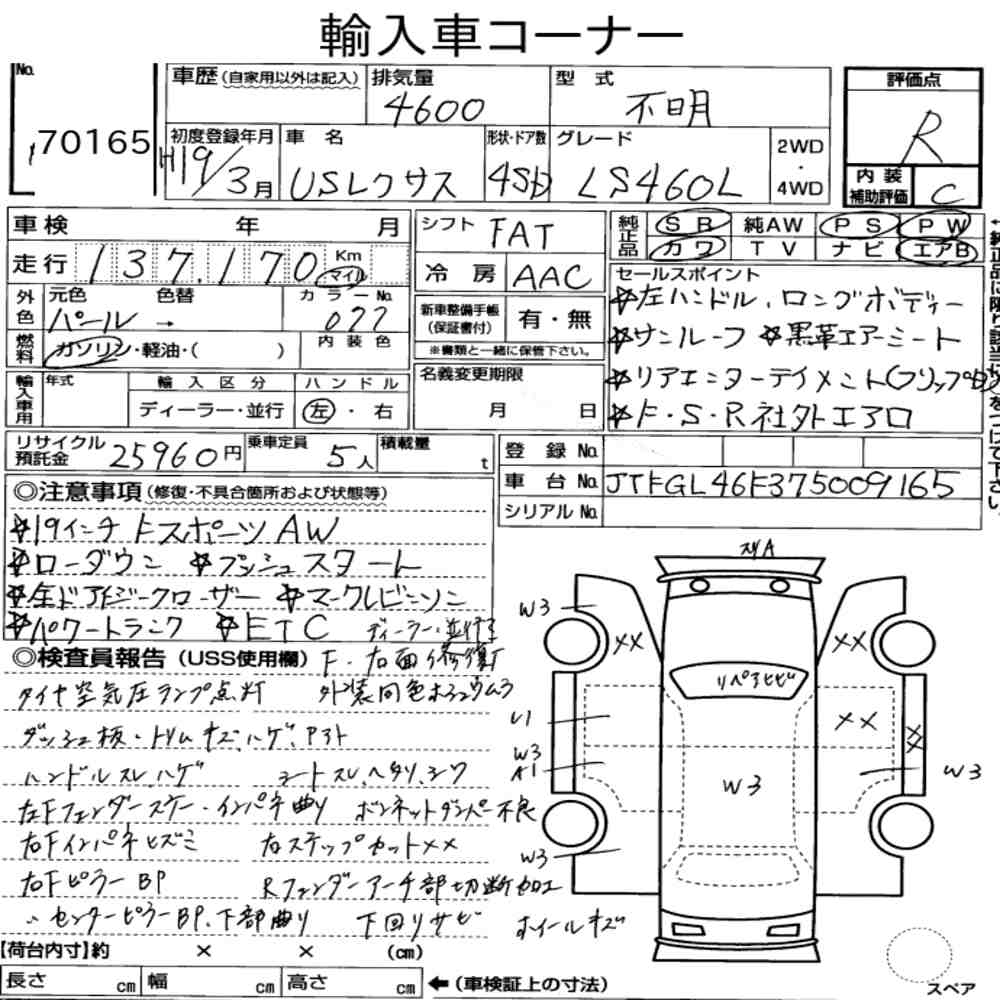 輸入車コーナー
No. 70165
車歴(自家用以外は記入) 排気量 4600 型式 不明
評価点 R
初度登録年月 H19/3月 車名 USレクサス 形状・ドア数 4SD グレード LS460L 2WD・4WD
内装補助評価 C
車検 年 月
シフト FAT
純正品 SR 純AW PS PW
カワ TV ナビ エアB
走行 137,170 Km マイル
冷房 AAC
セールスポイント
☆左ハンドル、ロングボディー
☆サンルーフ ☆黒革エアーシート
☆リアエンターテイメント(フリップD)
☆F・S・R社外エアロ
外色 元色 パール 色替 → カラーNo. 077
新車整備手帳(保証書付) 有・無
※書類と一緒に保管下さい。
燃料 ガソリン・軽油・( ) 内装色
輸入車用 年式 輸入区分 ディーラー・並行 ハンドル 左・右
名義変更期限 月 日
リサイクル預託金 25960円 乗車定員 5人 積載量 t
登録No.
車台No. JTFGL46F375009165
シリアルNo.
◎注意事項(修復・不具合箇所および状態等)
☆19インチFスポーツAW
☆ローダウン ☆プッシュスタート
☆全ドアイージークローザー ☆マークレビンソン
☆パワートランク ☆ETC ディーラー・並行不
◎検査員報告(USS使用欄) F・右面修復
タイヤ空気圧ランプ点灯 外装同色ホシュウムラ
ダッシュ板・トリムキズ、ハゲ、アト
ハンドルスレ、ハゲ シートスレ、ヘタリ、シワ
左Fフェンダーステー・インパネ曲り ボンネットダンパー不良
右Fインパネヒズミ 右ステップカット××
右FピラーBP Rフェンダーアーチ部切断加工
〃センターピラーBP、下部曲り 下回りサビ ホイールキズ
スリA
W3
××
××
リペアヒビ
U1
××
××
W3
A1
W3
W3
W3
【荷台内寸】約 × × (cm)
長さ cm 幅 cm 高さ cm ←(車検証上の寸法)
スペア